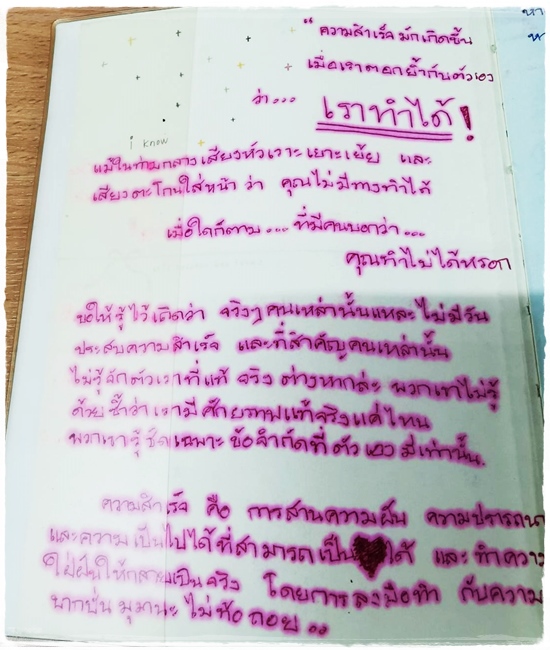 " ความสำเร็จ มักเกิดขึ้น
เมื่อเราตอกย้ำกับตัวเอง
ว่า... เราทำได้!
i know
แม้ในท่ามกลางเสียงหัวเราะเยาะเย้ย และ
เสียงตะโกนใส่หน้า ว่า คุณไม่มีทางทำได้
เมื่อใดก็ตาม... ที่มีคนบอกว่า...
คุณทำไม่ได้หรอก
ขอให้รู้ไว้เถิดว่า จริงๆคนเหล่านั้นแหละ ไม่มีวัน
ประสบความสำเร็จ และที่สำคัญคนเหล่านั้น
ไม่รู้จักตัวเราที่แท้ จริง ต่างหากล่ะ พวกเขาไม่รู้
ด้วยซ้ำว่า เรามีศักยภาพแท้จริงแค่ไหน
พวกเขารู้ชัดเฉพาะ ข้อจำกัดที่ตัวเอง มีเท่านั้น.
ความสำเร็จ คือ การสานความฝัน ความปรารถนา
และความเป็นไปได้ที่สามารถเป็น ได้ และทำความ
ใฝ่ฝันให้กลายเป็นจริง โดยการลงมือทำ กับความ
บากบั่น มุมานะ ไม่ท้อถอย..